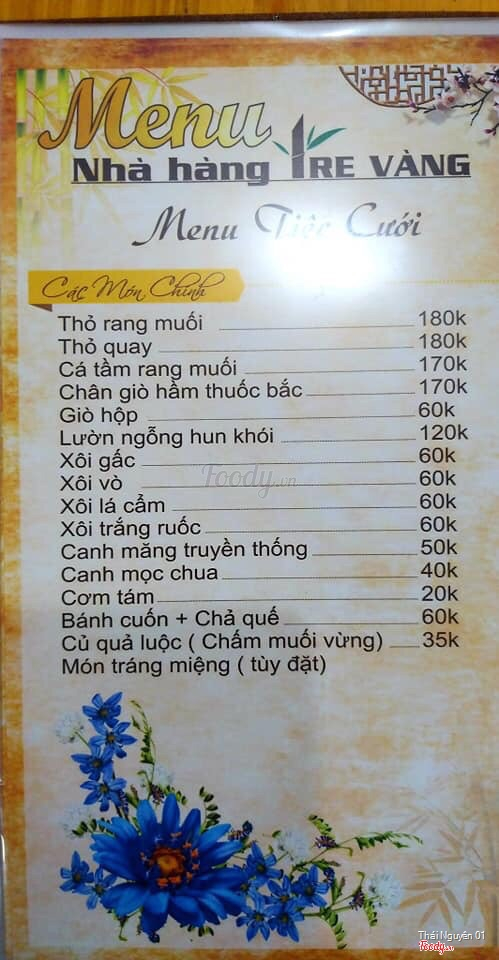 Menu
Nhà hàng TRE VÀNG
Menu Tiệc Cưới
Các Món Chính
Thỏ rang muối 180k
Thỏ quay 180k
Cá tầm rang muối 170k
Chân giò hầm thuốc bắc 170k
Giò hộp 60k
Lườn ngỗng hun khói 120k
Xôi gấc 60k
Xôi vò 60k
Xôi lá cẩm 60k
Xôi trắng ruốc 60k
Canh măng truyền thống 50k
Canh mọc chua 40k
Cơm tám 20k
Bánh cuốn + Chả quế 60k
Củ quả luộc ( Chấm muối vừng) 35k
Món tráng miệng ( tùy đặt)
Foody.vn
Thái Nguyên 01
Foody.vn